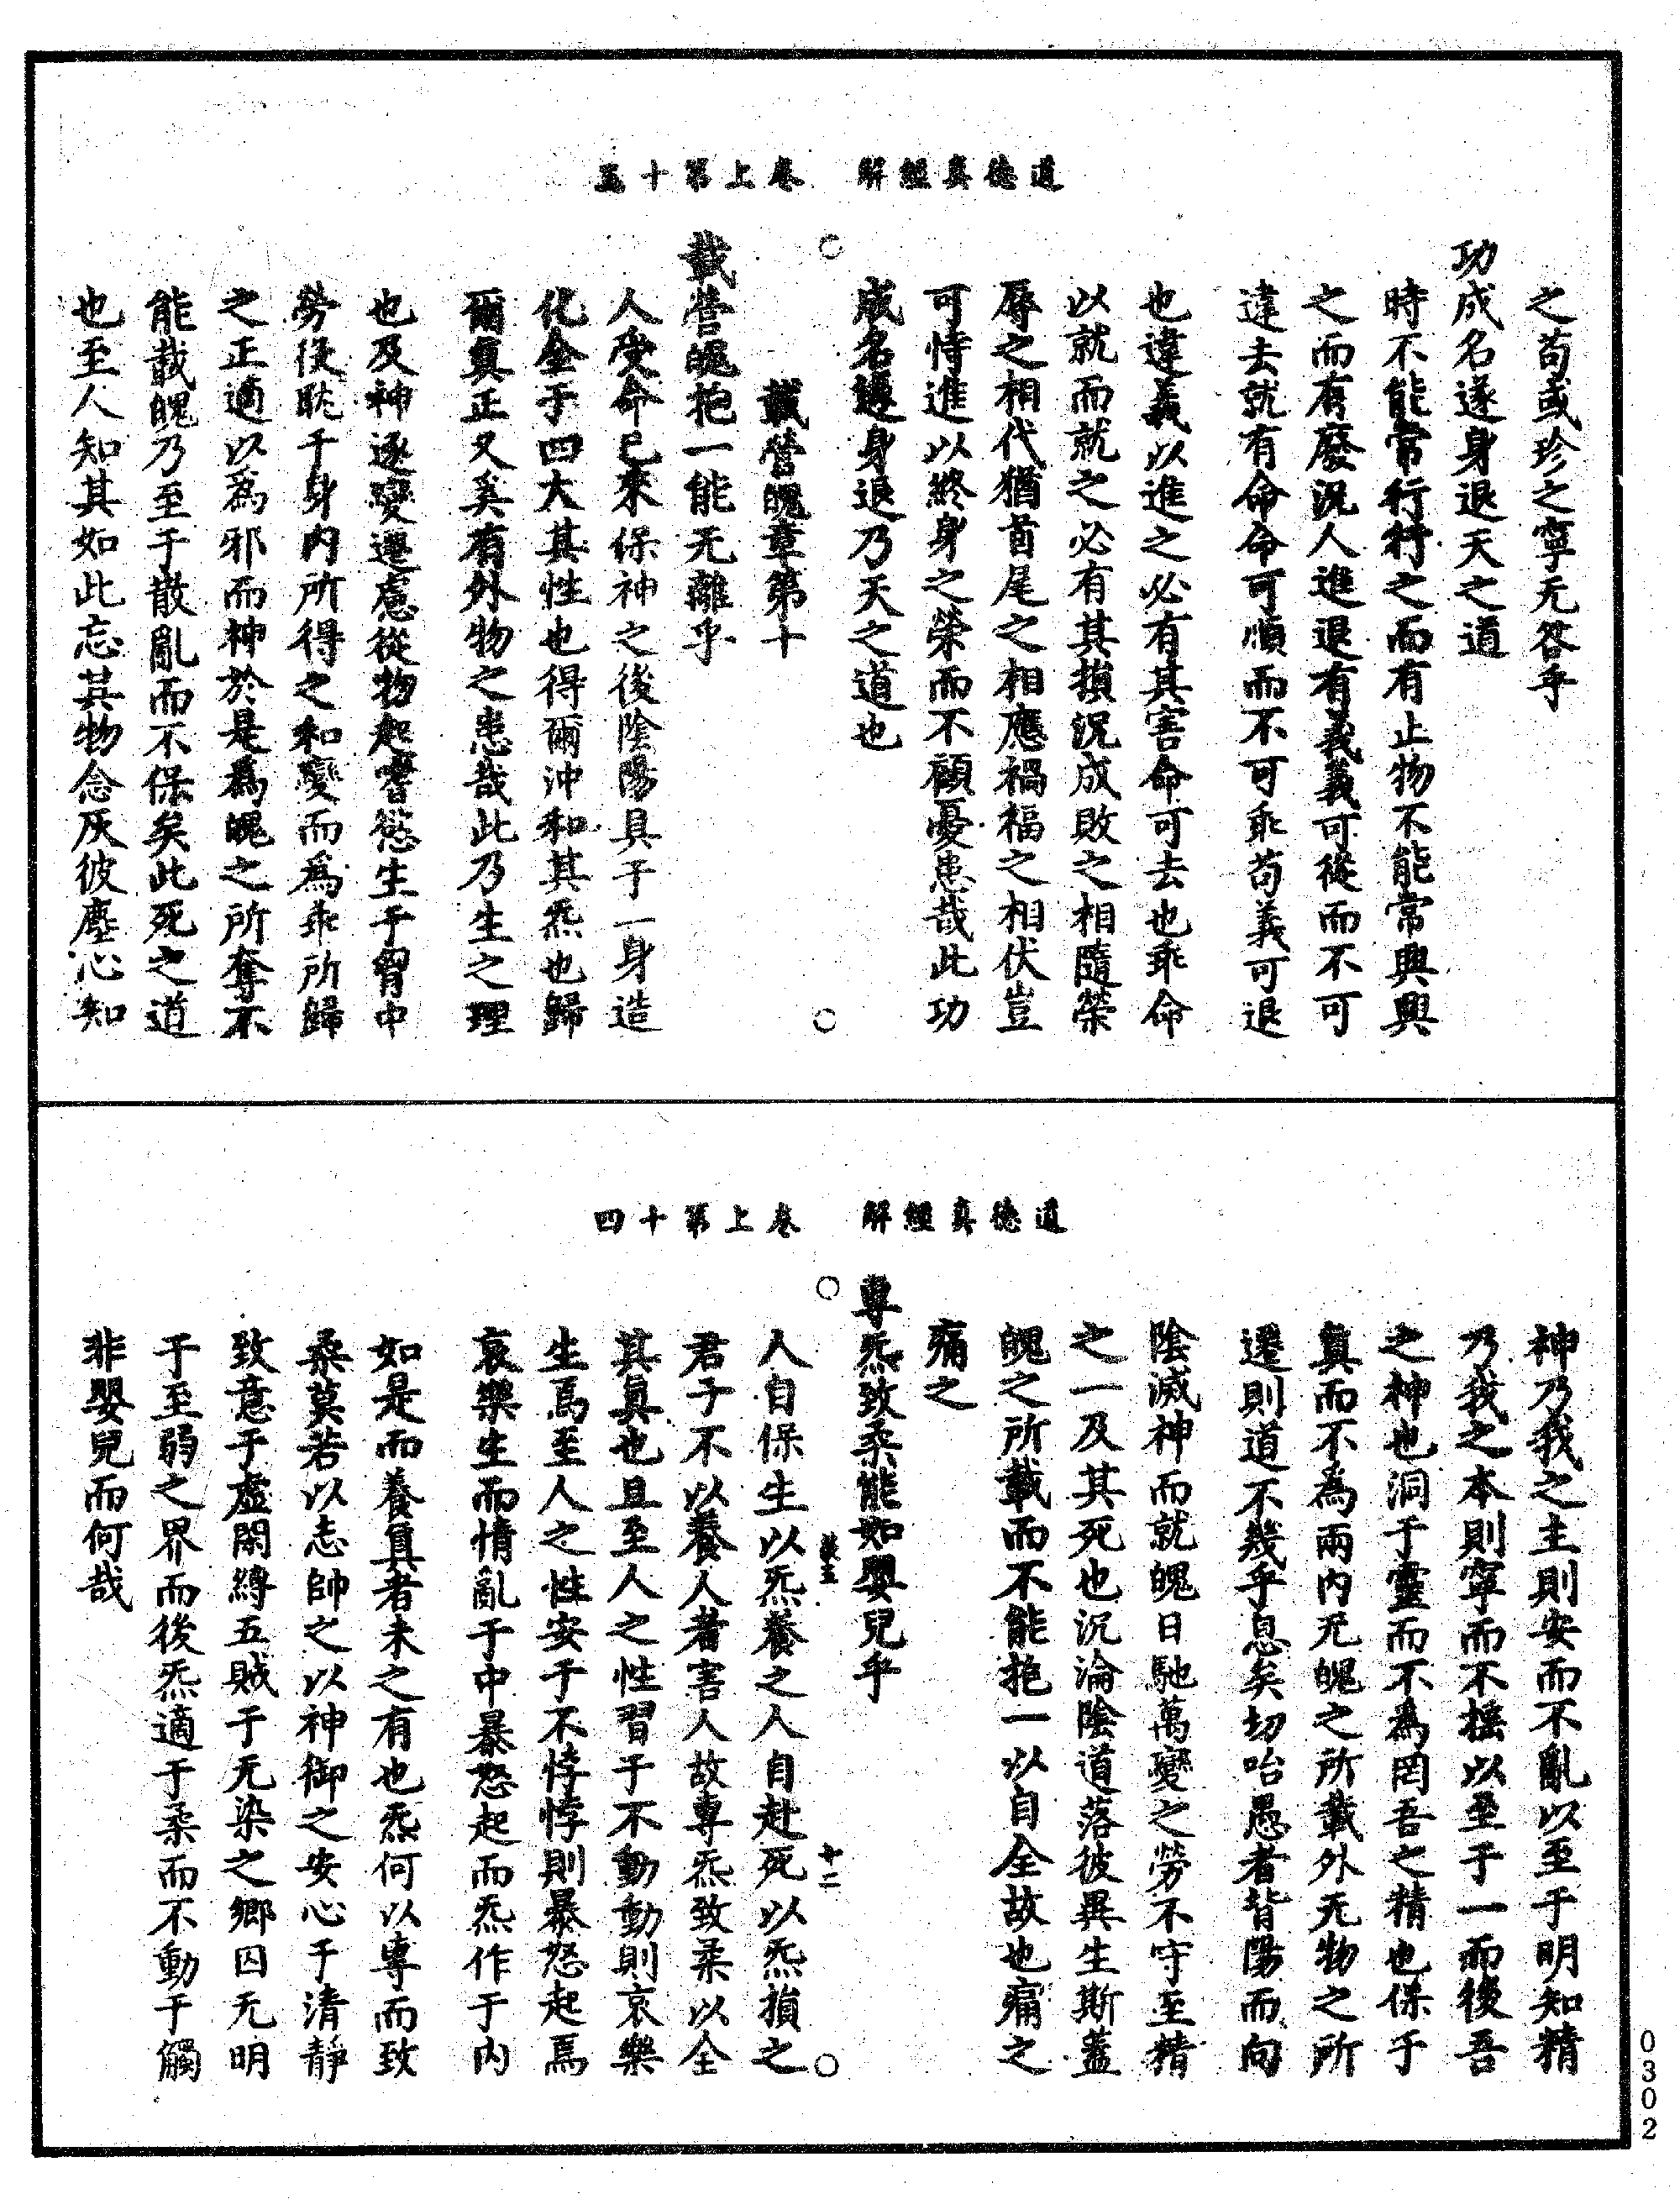 道德真經解　卷上第十三
之苟或珍之寧无咎乎
功成名遂身退天之道
時不能常行行之而有止物不能常興興
之而有廢況人進退有義義可從而不可
違去就有命命可順而不可乖苟義可退
也違義以進之必有其害命可去也乖命
以就而就之必有其損況成敗之相隨榮
辱之相代猶首尾之相應禍福之相伏豈
可恃進以終身之榮而不顧憂患哉此功
成名遂身退乃天之道也
載營魄章第十
載營魄抱一能无離乎
人受命已來保神之後陰陽具于一身造
化全于四大其性也得爾沖和其炁也歸
爾真正又奚有外物之患哉此乃生之理
也及神逐變遷慮從物起嗜慾生于胷中
勞役耽于身內所得之和變而爲乖所歸
之正適以爲邪而神於是爲魄之所奪不
能載魄乃至于散亂而不保矣此死之道
也至人知其如此忘其物念灰彼塵心知
道德真經解　卷上第十四
神乃我之主則安而不亂以至于明知精
乃我之本則寧而不搖以至于一而後吾
之神也洞于靈而不爲罔吾之精也保于
真而不爲兩內无魄之所載外无物之所
遷則道不幾乎息矣切咍愚者背陽而向
陰滅神而就魄日馳萬變之勞不守至精
之一及其死也沉淪陰道落彼異生斯蓋
魄之所載而不能抱一以自全故也痛之
痛之
專炁致柔能如嬰兒乎
人自保生以炁養之人自赴死以炁損之
君子不以養人者害人故專炁致柔以全
其真也且至人之性習于不動動則哀樂
生焉至人之性安于不悖悖則暴怒起焉
哀樂生而情亂于中暴怒起而炁作于內
如是而養真者未之有也炁何以專而致
柔莫若以志帥之以神御之安心于清靜
致意于虛閑縛五賊于无染之鄉囚无明
于至弱之界而後炁適于柔而不動于觸
非嬰兒而何哉
十二
0302